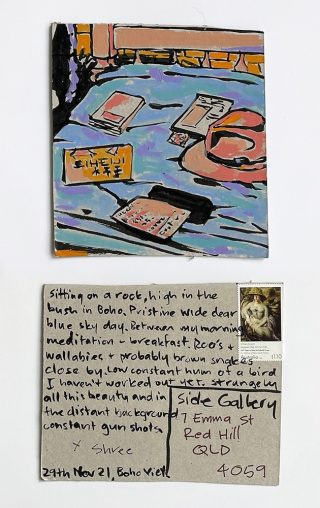 EIHEIJI
Sitting on a rock, high in the
bush in Boho. Pristine wide clear
blue sky day. Between my morning
meditation + breakfast. Roo's +
wallabies + probably brown snakes
close by. Low constant hum of a bird
I haven't worked out yet. Strangely
all this beauty and in
the distant background
constant gun shots.
x Shree
29th Nov 21, Boho Vic
Side Gallery
7 Emma St
Red Hill
QLD
4059
Australia
$1.10